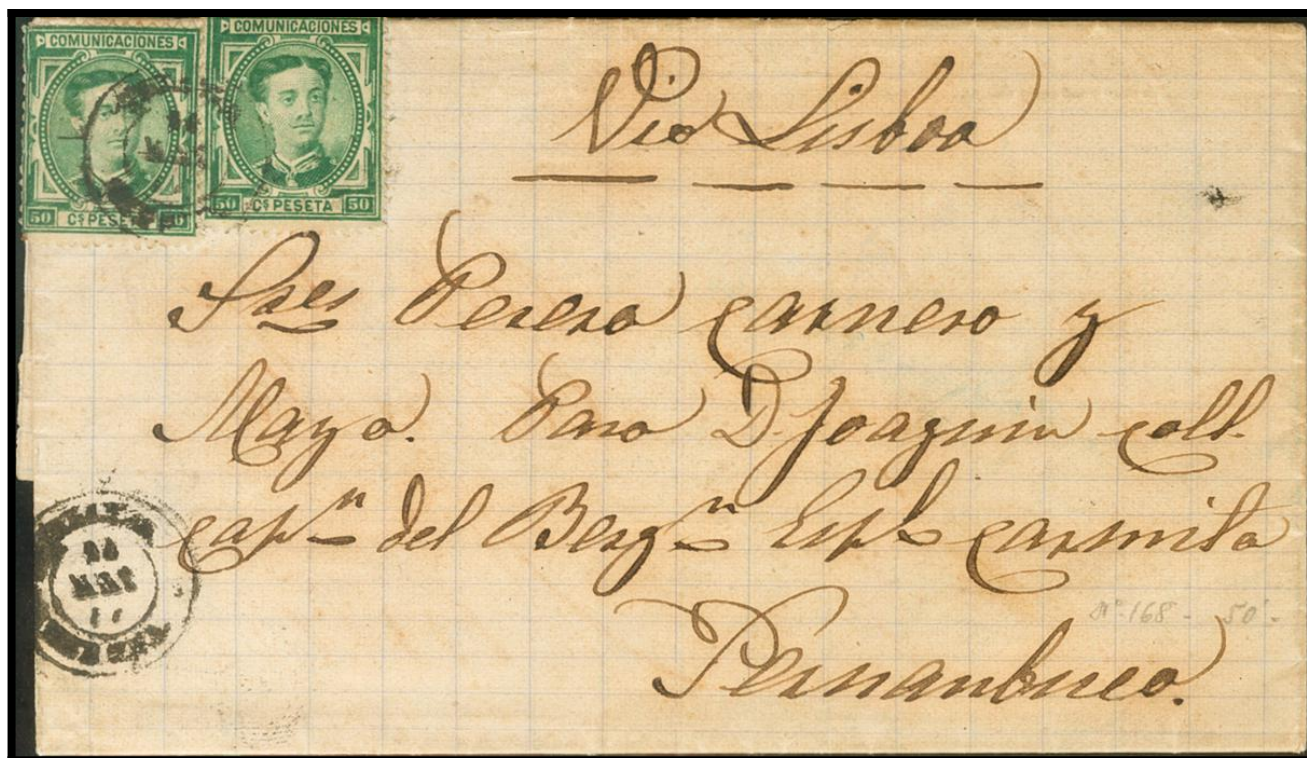 COMUNICACIONES
50 CS PESETA 50
COMUNICACIONES
50 CS PESETA 50
Via Lisboa
Sres Perera Carnero y
Mayo. Para D. Joaquin Coll.
Capn del Bergn Espl Carmita
Pernambuco.
Nº 168 - 50